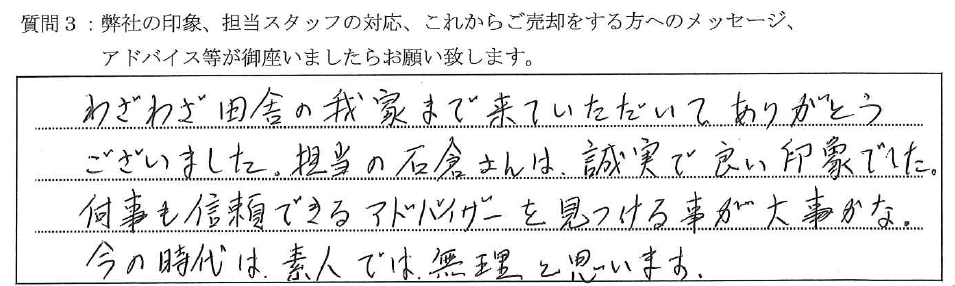 質問3：弊社の印象、担当スタッフの対応、これからご売却をする方へのメッセージ、
アドバイス等が御座いましたらお願い致します。
わざわざ田舎の我家まで来ていただいて、ありがとう
ございました。担当の石倉さんは、誠実で良い印象でした。
何事も信頼できるアドバイザーを見つける事が大事かな。
今の時代は、素人では、無理と思います。